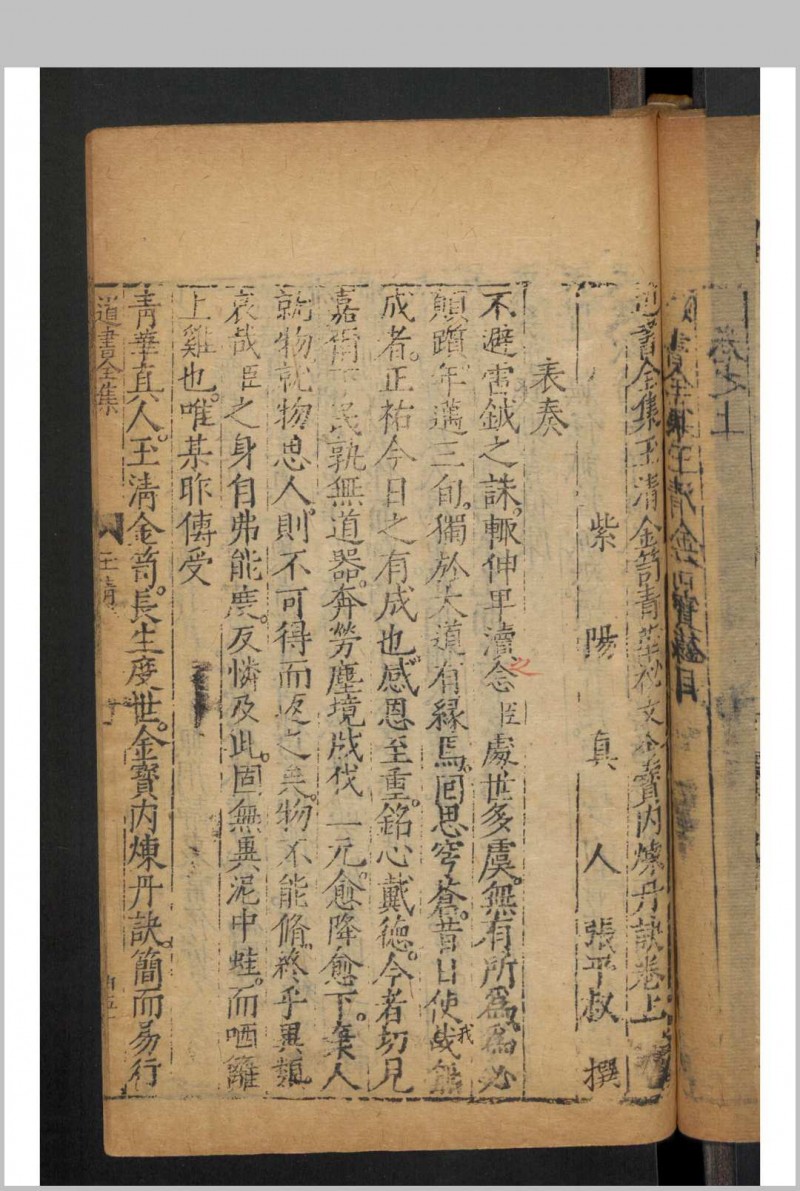 卷之上
道書全集玉清金笥青華秘文金寶內煉丹訣卷上
紫陽真人張平叔撰
表奏
不避雷鉞之誅輙伸卑瀆念臣處世多虞無有所爲爲必
顛躓年邁三旬獨於大道有緣焉囘思穹蒼昔日使我無
成者正祐今日之有成也感恩至重銘心戴德今者切見
嘉爾下民孰無道器奔勞塵境戕伐一元愈降愈下棄人
就物就物思人則不可得而返之矣物不能脩終乎異類
哀哉臣之身自弗能度反憐及此固無異泥中蛙而哂籬
上雞也唯某昨傳受
青華真人玉清金笥長生度世金寶内煉丹訣簡而易行
道書全集 玉清